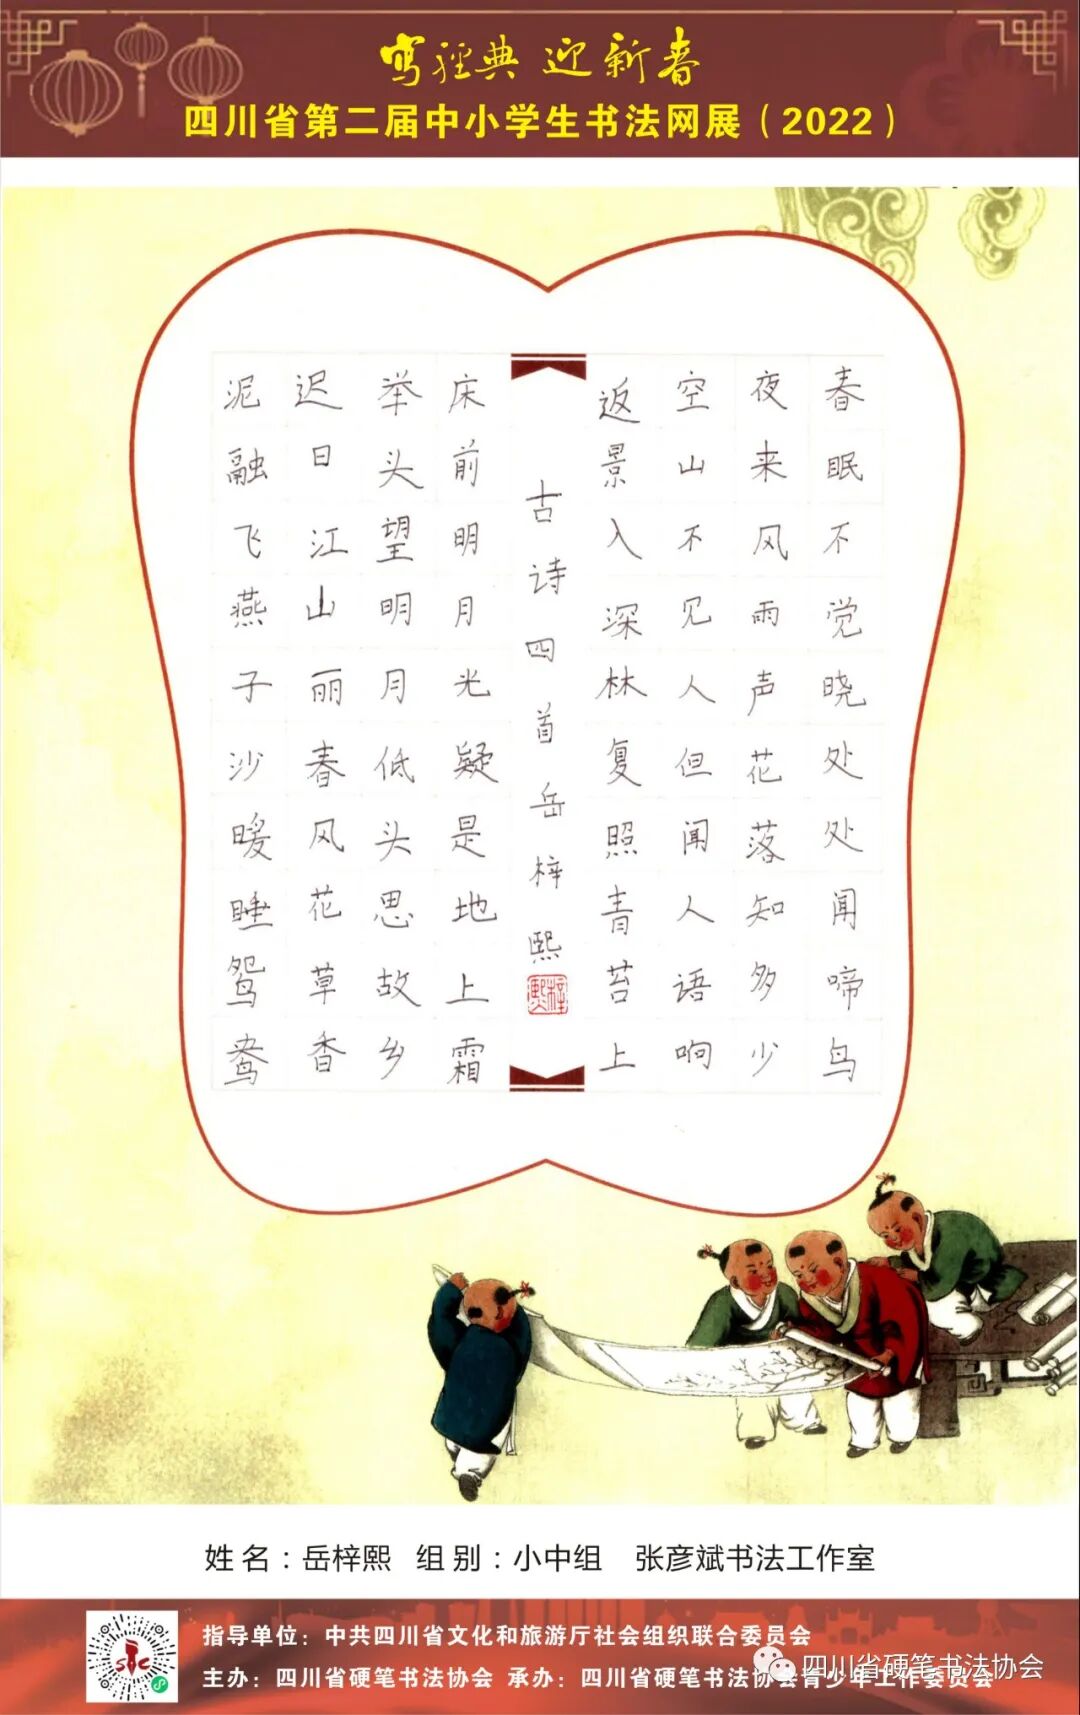 写经典 迎新春
四川省第二届中小学生书法网展（2022）
春眠不觉晓处处闻啼鸟
夜来风雨声花落知多少
空山不见人但闻人语响
返景入深林复照青苔上
古诗四首岳梓熙
梓熙
床前明月光疑是地上霜
举头望明月低头思故乡
迟日江山丽春风花草香
泥融飞燕子沙暖睡鸳鸯
姓名：岳梓熙 组别：小中组 张彦斌书法工作室
指导单位：中共四川省文化和旅游厅社会组织联合委员会
主办：四川省硬笔书法协会 承办：四川省硬笔书法协会青少年工作委员会
四川省硬笔书法协会